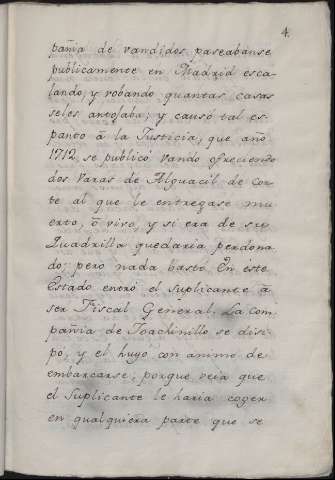 4.
pañia de vandidos paseabanse
publicamente en Madrid esca-
lando, y robando quantas casas
seles antojaba; y causó tal es-
panto â la Justicia, que año
1712 se publicó vando ofreciendo
dos Varas de Alguacil de Cor-
te al que le entregase mu-
erto, ô vivo, y si era de su
Quadrilla quedaria perdona-
do; pero nada bastó. En este
Estado entró el Suplicante â
ser Fiscal General. La Com-
pañia de Joachinillo se disi-
pó, y el huyó con animo de
embarcarse, porque veia que
el Suplicante le haria coger
en qualquiera parte que se